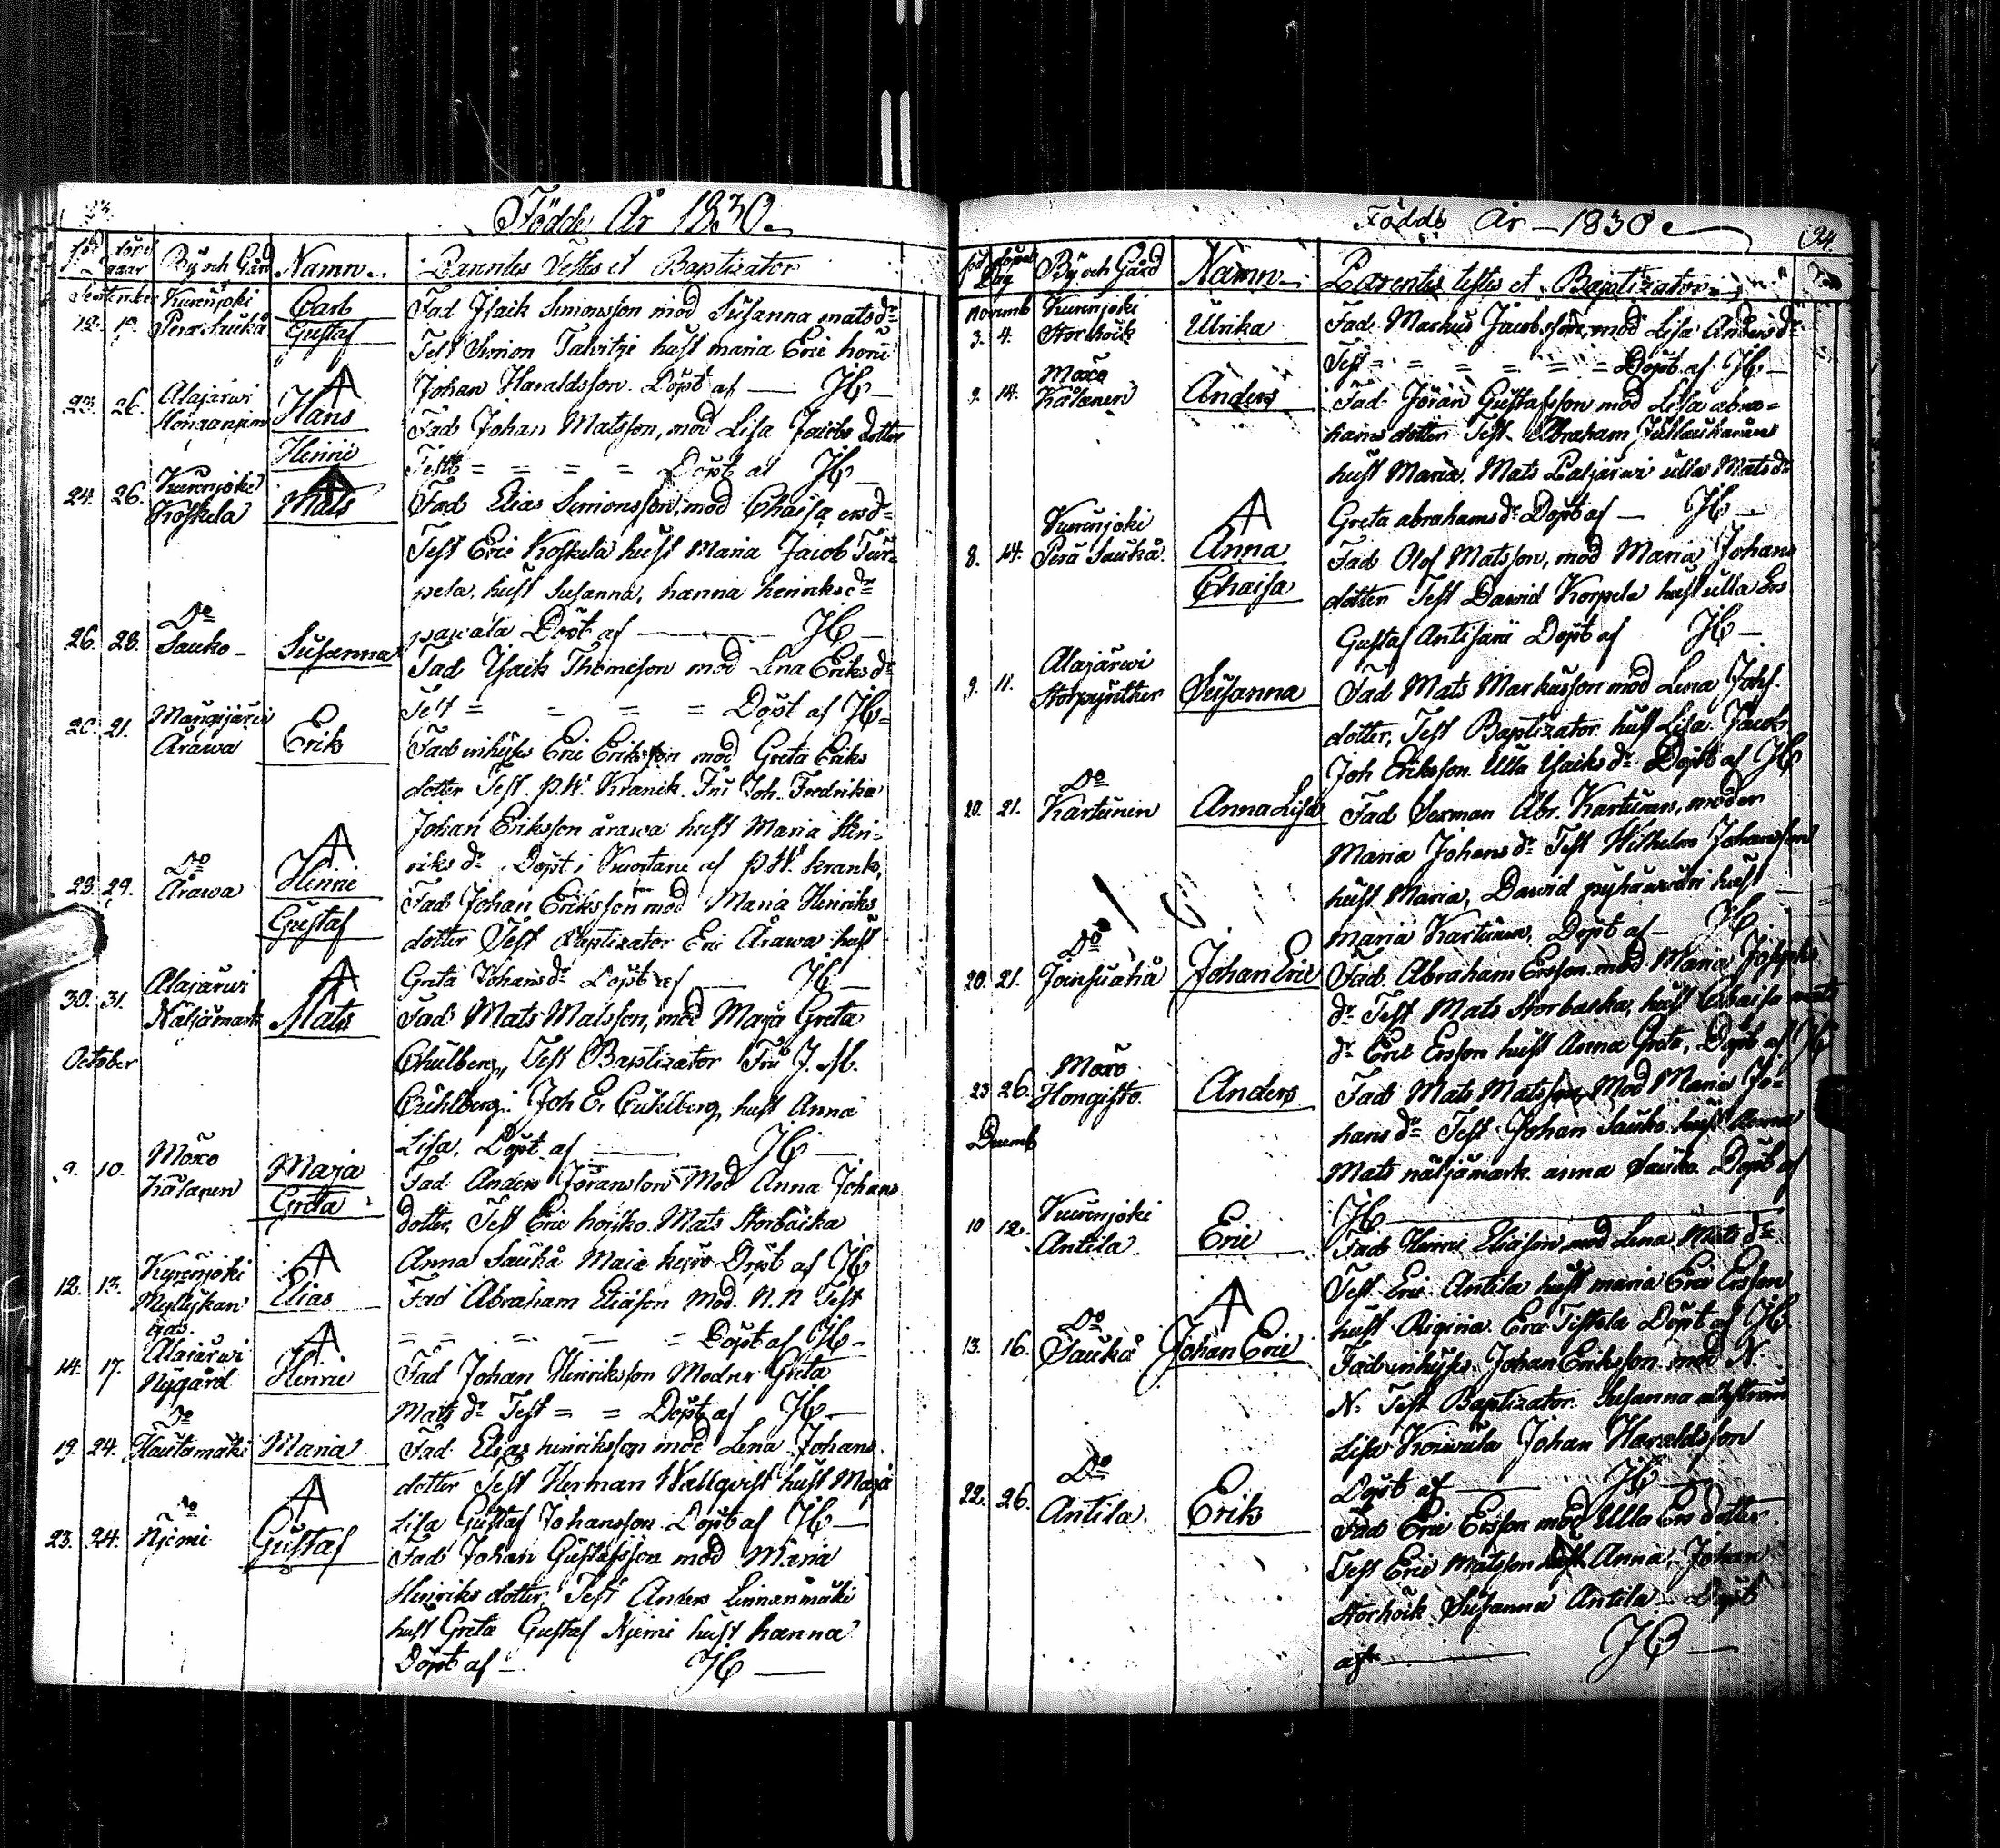 Födde År 1830.
född döpt By och Gård Namn. Parentes Testes et Baptizator
September Kurenjoki Carl Fad Isaik Simonsson mod Susanna mats dr
Perä Saukå Gustaf Test Simon Talvitje hust maria Eric
Johan Haraldsson. Döpt af — JH —
23. 26. Alajärwi Hans Fad Johan Matsson, mod Lisa Jacobs dotter
Henric Test = = = = Döpt af JH —
24. 26. Kurenjoki Koskela Mats Fad Elias Simonsson, mod Chaisa ersdr
Test Eric Koskela hust Maria Jacob Tur-
pela, hust Susanna, hanna henriksdr
Döpt af — JH —
26. 28. Do Sauko — Susanna Fad Isaik Thomeson mod Lena Eriks dr
Test = = = = Döpt af JH —
20. 21. Mangijärvi Årawa Erik Fad inhyses Eric Eriksson mod Greta Eriks
dotter Test. P.W. Kranik. Fru Joh. Fredrika
Johan Eriksson årawa hust Maria Hen-
riks dr Döpt i Kuortane af P.W. Krank,
28. 29. Do Årawa Henric Gustaf Fad Johan Eriksson mod Maria Henriks
dotter Test Baptizator Eric Årawa hust
Greta Johans dr Döpt af — JH —
30. 31. Alajärwi Näljämark Mats Fad Mats Matsson, mod Maja Greta
October
Chulberg, Test Baptizator Fru J. M.
Cuhlberg. Joh E. Cuhlberg hust Anna
Lisa. Döpt af — JH —
9. 10. Möxö Kälanen Maja Greta Fad Anders Jöransson Mod Anna Johans
dotter, Test Eric hoisko. Mats Storbacka
Anna Saukå Maia Döpt af JH
12. 13. Kurenjoki Myllykan gas. Elias Fad Abraham Eliäson Mod. N.N Test
= = = = = Döpt af JH —
14. 17. Alajärwi Nygård Henric Fad Johan Henriksson Modren Greta
Mats dr Test = = Döpt af JH —
19. 24. Do Hautamäki Maria Fad Elias henriksson mod Lena Johans
dotter Test Herman Wallqvist hust Maja
Lisa Gustaf Johansson Döpt af JH —
23. 24. Do Njemi Gustaf Fad Johan Gustafsson mod Maria
Henriks dotter, Test Anders Linnanmäki
hust Greta Gustaf Njemi hust hanna
Döpt af — JH —
Födde År — 1830
94.
föd döpt Dag By och Gård Namn. Parentes testes et Baptizator
Novemb
3. 4. Kurenjoki Storhöik Ulrika Fad. Markus Jacobsson, mod Lisa Anders dr
Test = = = = = = Döpt af JH —
9. 14. Möxö Kälanen Anders Fad. Jöran Gustafsson mod Lisa abra=
hams dotter Test. Abraham
hust Maria. Mats ulla Mats dr
Greta abrahams dr Döpt af — JH —
8. 14. Kurenjoki Perä Saukå. Anna Chaisa Fad Olof Matsson, mod Maria Johans
dotter Test Dawid Korpela hust ulla Ers
Gustaf Döpt af JH —
9. 11. Alajärwi Susanna Fad Mats Markusson mod Lena Johs.
dotter, Test Baptizator hust Lisa Jacob
Joh Eriksson. Ulla Isaiks dr Döpt af JH
20. 21. Do Kartunen Anna Lisa Fad Sexman Abr. Kartunen, moder
Maria Johans dr Test Wilhelm Johansson
hust Maria, Dawid hust
Maria Kartunen, Döpt af — JH
20. 21. Do Johan Eric Fad. Abraham Ersson mod Maria Josephs
dr Test Mats Storbacka, hust Chaisa mats
dr Eric Ersson hust Anna Greta, Döpt af JH
23 26. Möxö Hongisto. Anders Fad Mats Matsson, Mod Maria Jo-
Decemb
hans dr Test Johan Sauko hust Anna
Mats näljämark. anna Sauko Döpt af
JH
10 12. Kurenjoki Antila Eric Fad Henric Eliäson mod Lena Mats dr
Test Eric Antila hust maria Eric Ersson
hust Rigina. Eric Döpt af JH
13. 16. Do Saukå Johan Eric Fad inhyses. Johan Eriksson mod N.
N. Test Baptizator. Susanna
Lisa Johan Haraldsson
Döpt af — JH —
22. 26. Do Antila. Erik Fad Eric Ersson mod Ulla Ers dotter
Test Eric Matsson hust Anna, Johan
Storhöik Susanna Antila — Döpt
af — JH —